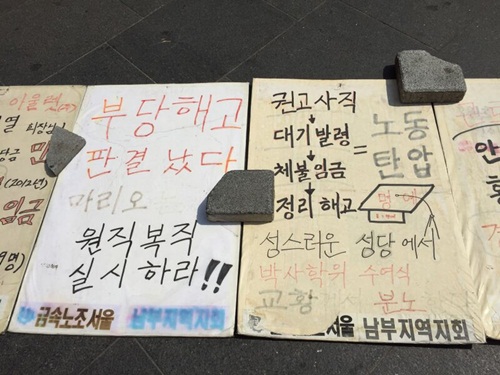 이을렬
열
당금
(2012년)
임금
9명)
부당해고
판결 났다
마리오
원직복직
실시하라!!
금속노조서울 남부지역지회
권고사직
대기발령
체불임금
정리해고
=
노동
탄압
명예
성스러운 성당에서
박사학위 수여식
교황 분노
서울 남부지역지회
안
황